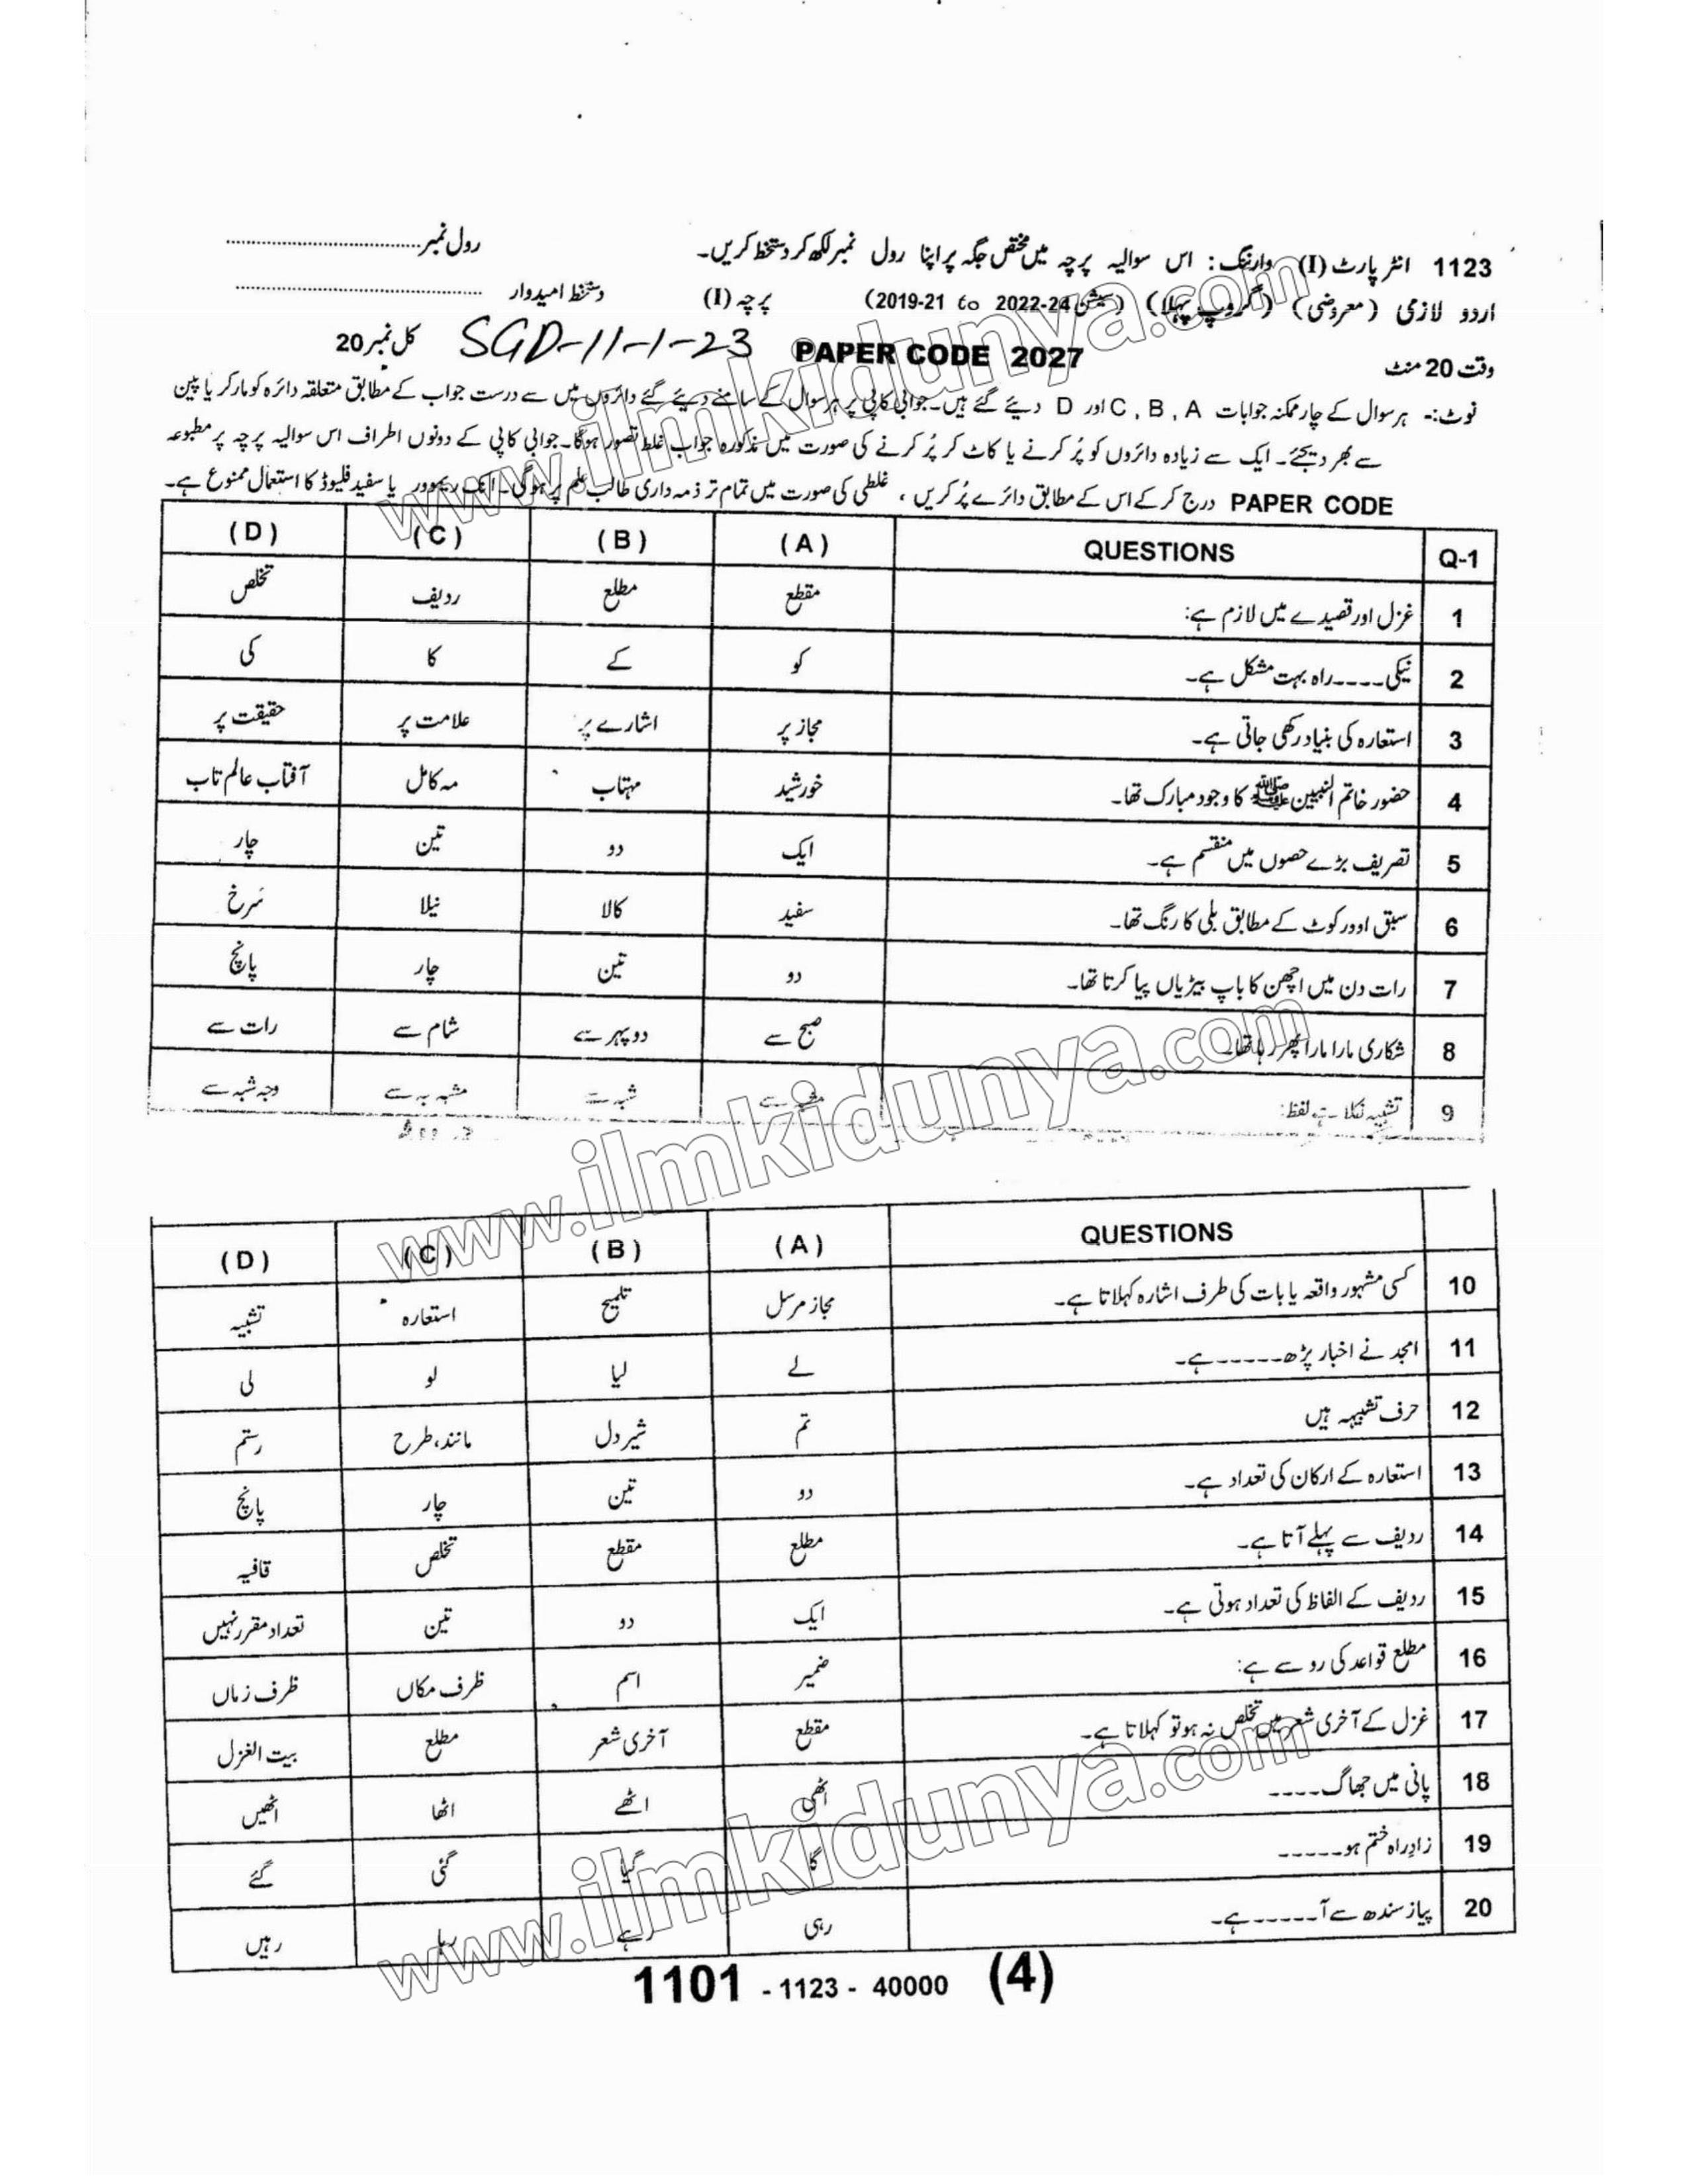 1123 انٹر پارٹ (I) وارننگ: اس سوالیہ پرچہ میں مختص جگہ پر اپنا رول نمبر لکھ کر دستخط کریں۔ رول نمبر
اردو لازمی (معروضی) (گروپ پہلا) (سیشن 2022-24 to 2019-21) پرچہ (I) دستخط امیدوار
وقت 20 منٹ PAPER CODE 2027 SGD-11-1-23 کل نمبر 20
نوٹ:- ہر سوال کے چار ممکنہ جوابات A , B , C اور D دیئے گئے ہیں۔ جوابی کاپی پر ہر سوال کے سامنے دیئے گئے دائروں میں سے درست جواب کے مطابق متعلقہ دائرہ کو مارکر یا پین
سے بھر دیجئے۔ ایک سے زیادہ دائروں کو پُر کرنے یا کاٹ کر پُر کرنے کی صورت میں مذکورہ جواب غلط تصور ہوگا۔ جوابی کاپی کے دونوں اطراف اس سوالیہ پرچہ پر مطبوعہ
PAPER CODE درج کر کے اس کے مطابق دائرے پُر کریں ، غلطی کی صورت میں تمام تر ذمہ داری طالب علم پر ہوگی۔ انک ریموور یا سفید فلیوڈ کا استعمال ممنوع ہے۔
Q-1 QUESTIONS (A) (B) (C) (D)
1 غزل اور قصیدے میں لازم ہے: مقطع مطلع ردیف تخلص
2 نیکی ---- راہ بہت مشکل ہے۔ کو کے کا کی
3 استعارہ کی بنیاد رکھی جاتی ہے۔ مجاز پر اشارے پر علامت پر حقیقت پر
4 حضور خاتم النبیین ﷺ کا وجود مبارک تھا۔ خورشید مہتاب مہ کامل آفتاب عالم تاب
5 تصریف بڑے حصوں میں منقسم ہے۔ ایک دو تین چار
6 سبق اوور کوٹ کے مطابق بلی کا رنگ تھا۔ سفید کالا نیلا سُرخ
7 رات دن میں اچھن کا باپ بیڑیاں پیا کرتا تھا۔ دو تین چار پانچ
8 شکاری مارا مارا پھر رہا تھا۔ صبح سے دوپہر سے شام سے رات سے
9 تشبیہ نکلا ہے لفظ: شبہ سے مشبہ بہ سے وجہ شبہ سے
QUESTIONS (A) (B) (C) (D)
10 کسی مشہور واقعہ یا بات کی طرف اشارہ کہلاتا ہے۔ مجاز مرسل تلمیح استعارہ تشبیہ
11 امجد نے اخبار پڑھ ------ ہے۔ لے لیا لو لی
12 حرف تشبیہہ ہیں تم شیر دل مانند، طرح رستم
13 استعارہ کے ارکان کی تعداد ہے۔ دو تین چار پانچ
14 ردیف سے پہلے آتا ہے۔ مطلع مقطع تخلص قافیہ
15 ردیف کے الفاظ کی تعداد ہوتی ہے۔ ایک دو تین تعداد مقرر نہیں
16 مطلع قواعد کی رو سے ہے: ضمیر اسم ظرف مکاں ظرف زماں
17 غزل کے آخری شعر میں تخلص نہ ہو تو کہلاتا ہے۔ مقطع آخری شعر مطلع بیت الغزل
18 پانی میں جھاگ ---- اٹھی اٹھے اٹھا اٹھیں
19 زادِ راہ ختم ہو ------ گا گیا گئی گئے
20 پیاز سندھ سے آ ------ ہے۔ رہی رہے رہا رہیں
1101 - 1123 - 40000 (4)
www.ilmkidunya.com
www.ilmkidunya.com
www.ilmkidunya.com